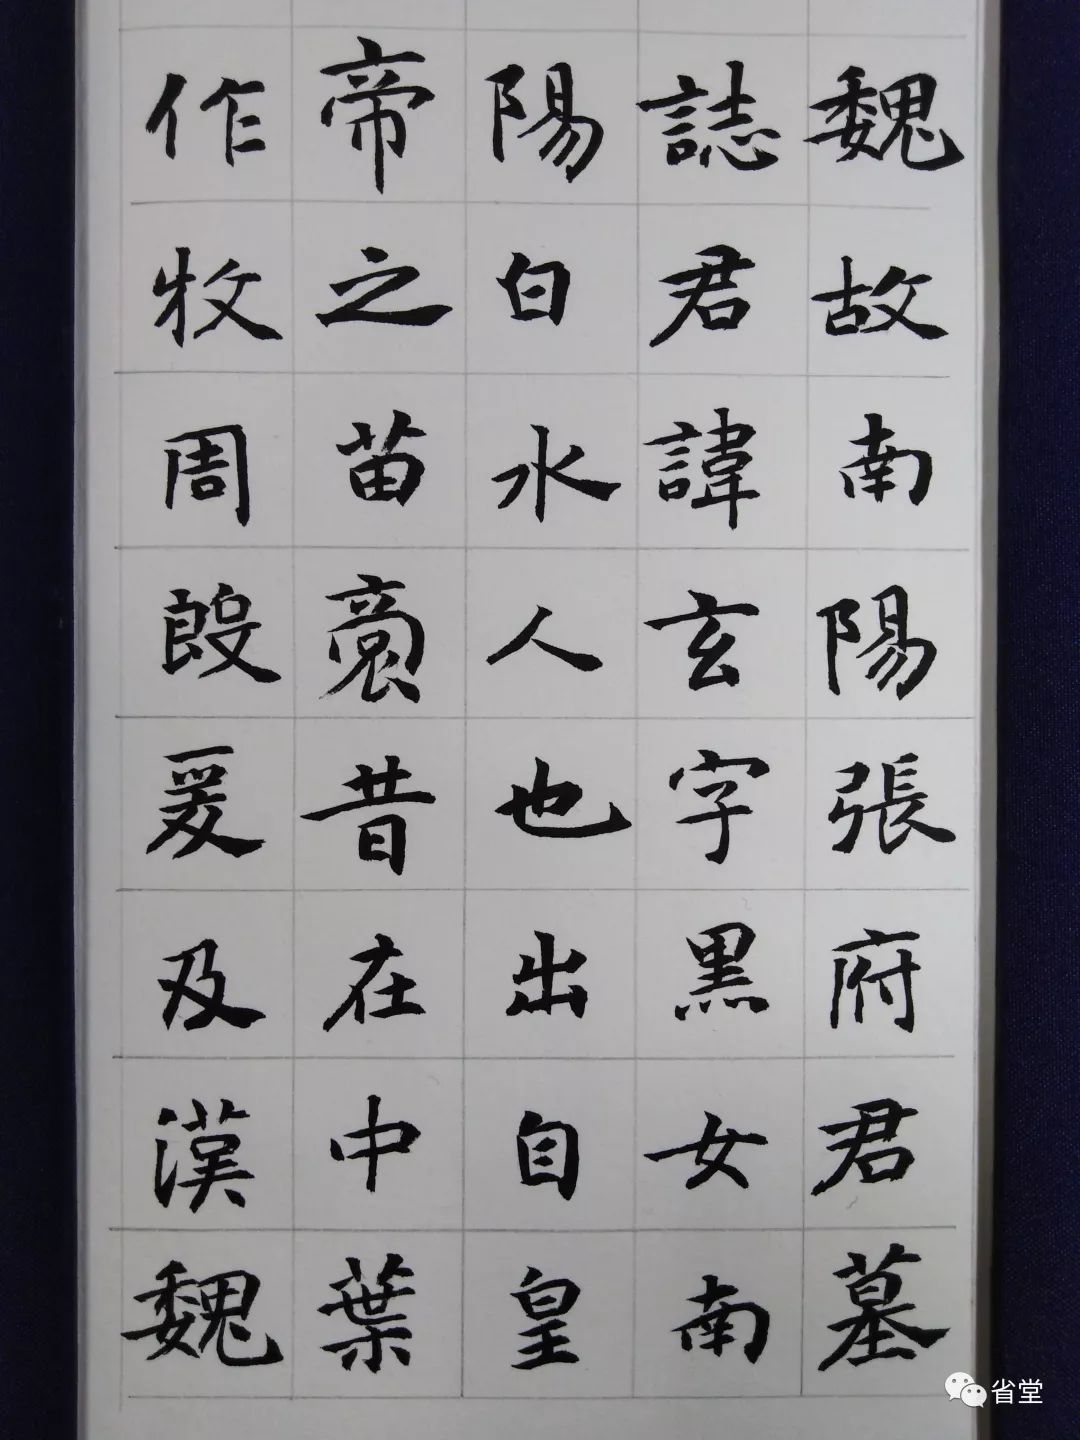 魏故南陽張府君墓
誌君諱玄字黑女南
陽白水人也出自皇
帝之苗裔昔在中葉
作牧周殷爰及漢魏
省堂